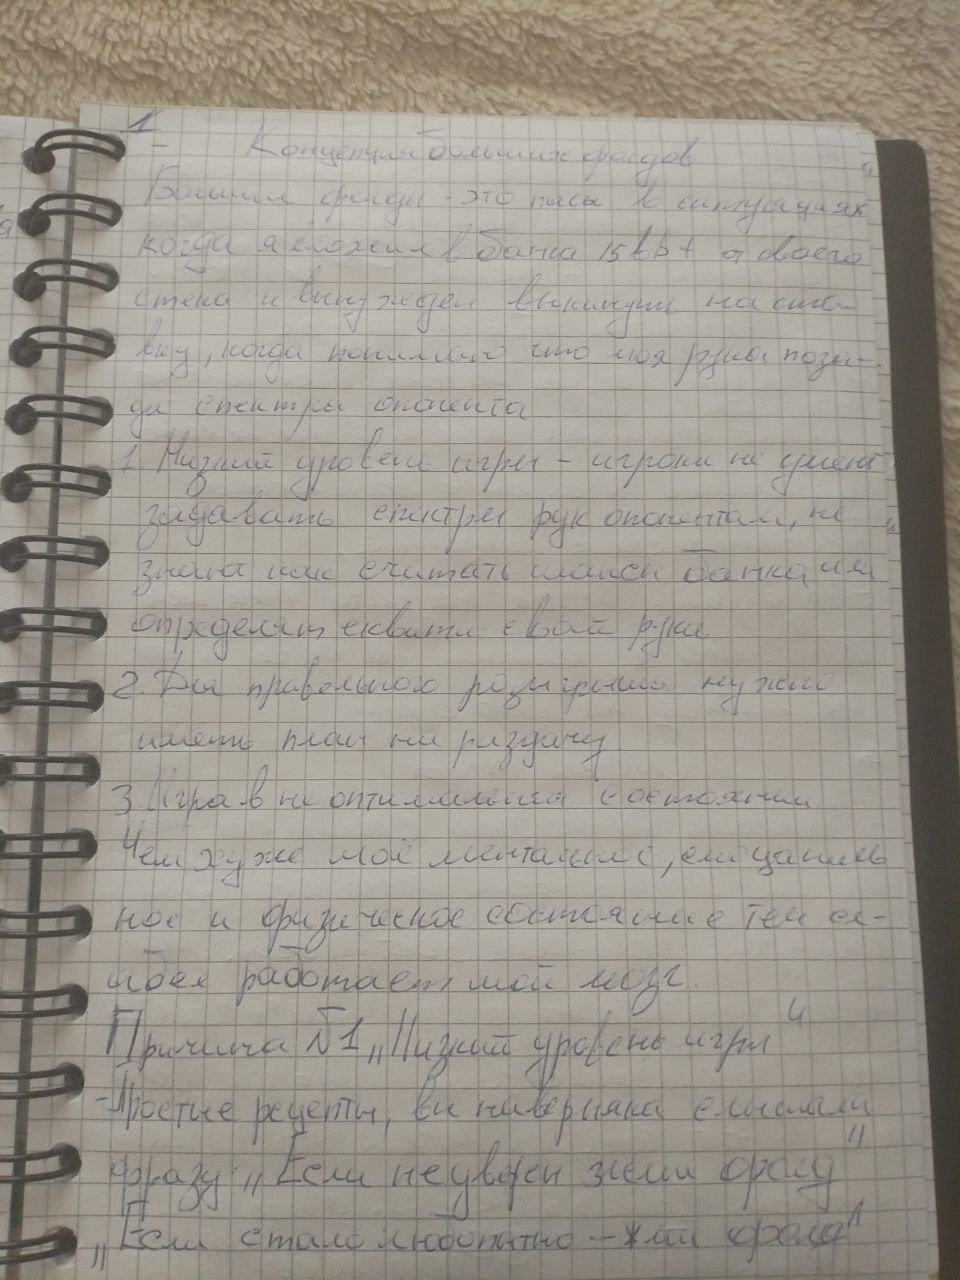 1
Концепция больших фолдов
Большие фолды - это пасы в ситуациях
когда я вложил в банк 15bb+ от своего
стека и вынужден выкинуть на ста-
вку, когда понимаю что моя рука поза-
ди спектра опонента
1. Низкий уровень игры - игроки не умеют
задавать спектры рук опонентам, не
знают как считать шансы банка или
определять еквити своей руки
2. Для правельного розыгрыша нужно
иметь план на раздачу
3. Игра в не оптимальном состоянии
Чем хуже моё ментальное, емоцаналь
ное и физическое состояние тем сл-
абея работает мой мозг.
Причина №1 „Низкий уровень игры"
- Простые рецепты, вы наверняка слышали
фразу: „Если не уверен жми фолд"
„Если стало любопытно - жми фолд"